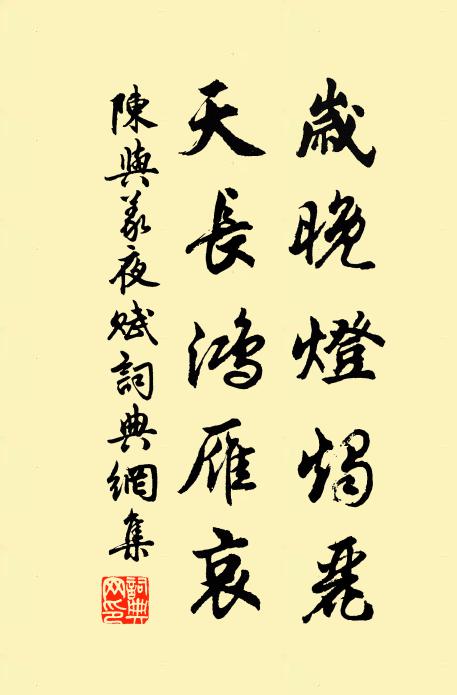 歲晚燈燭麗
天長鴻雁哀
陳與義夜賦詞典網集
詞典網印